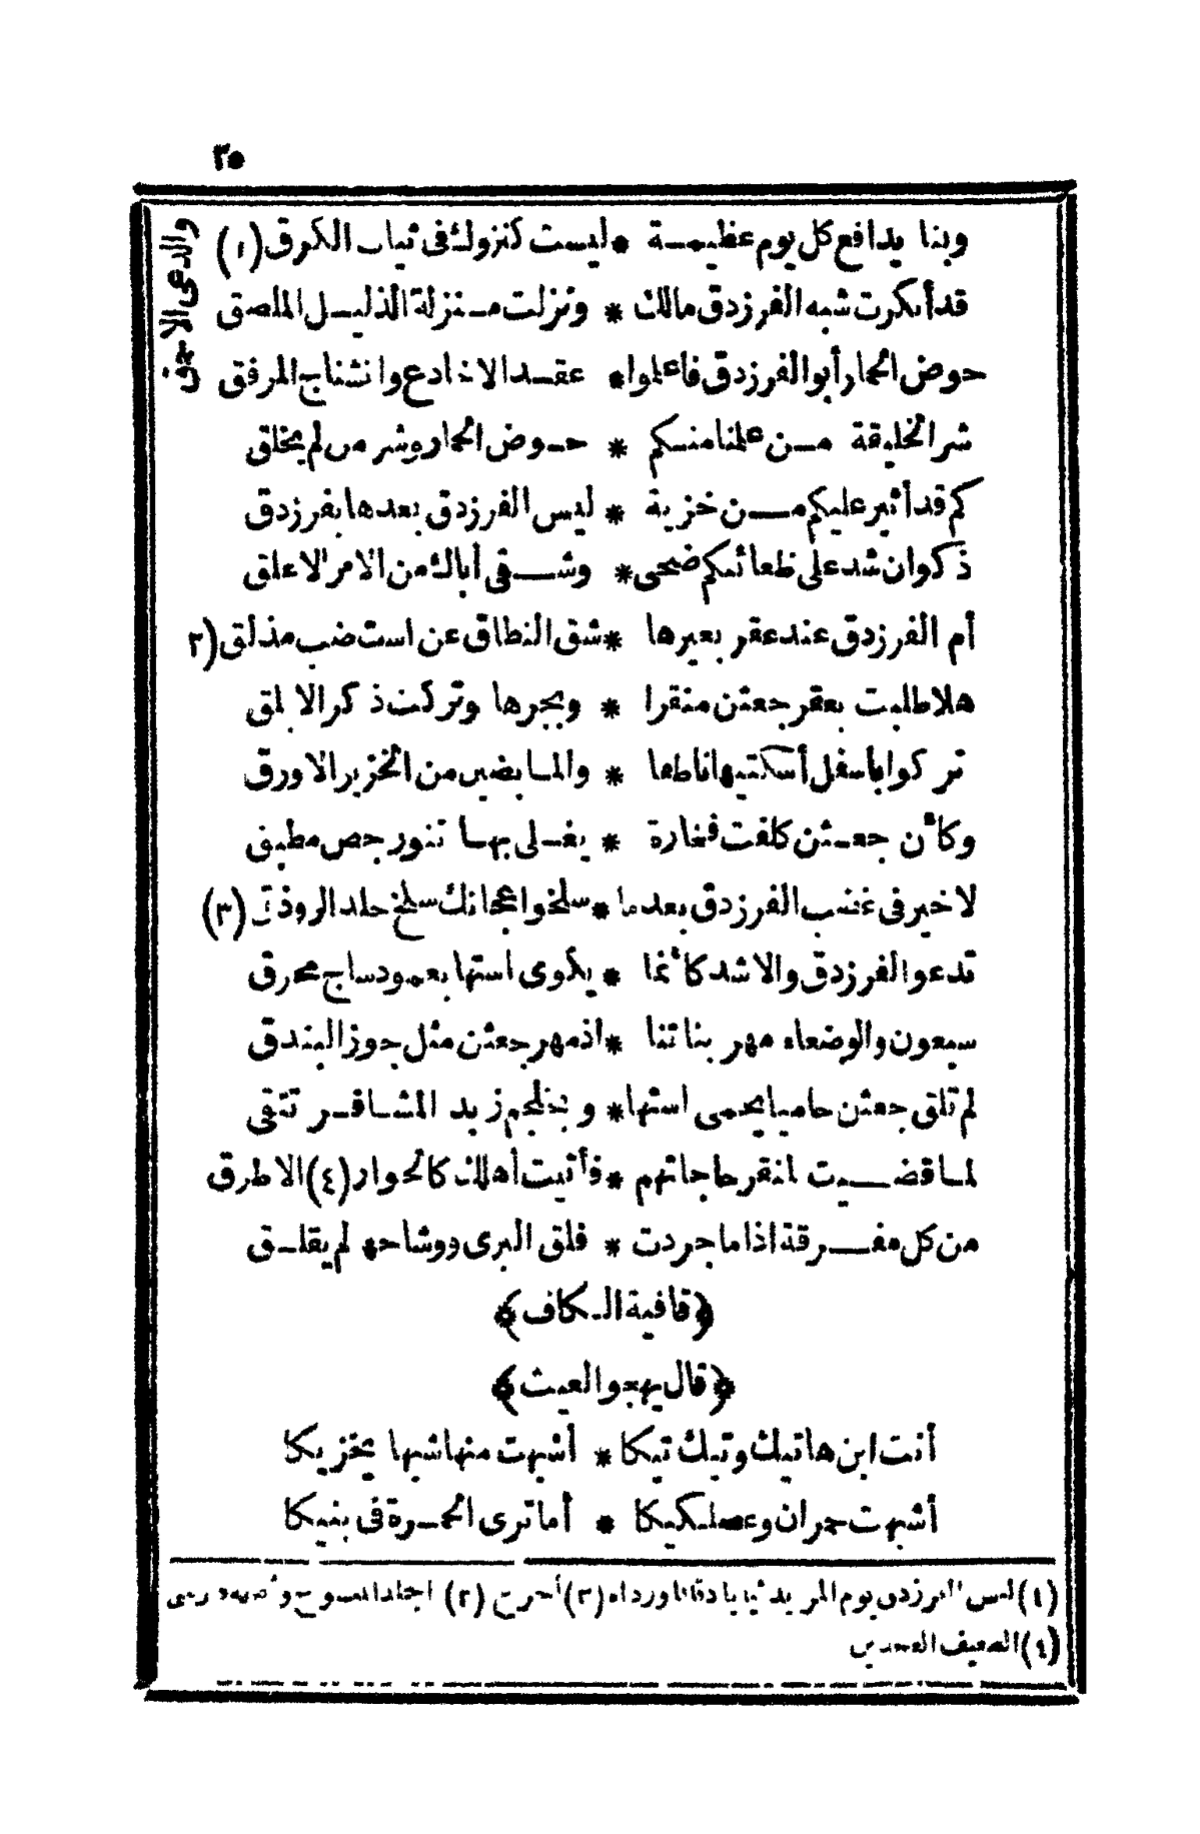 ٣٥
وبنا يدافع كل يوم عظيمة * ليست كنزولك فى ثياب الكرق (١)
قد أنكرت شبه الفرزدق مالك * ونزلت منزلة الذليل الملصق
والدعى الاحمق
حوض الحمار أبو الفرزدق فاعلموا * عقد الاخادع وانشناج المرفق
شر الخليقة من علمنا منكم * حوض الحمار وشر من لم يخلق
كم قد أثير عليكم من خزية * ليس الفرزدق بعدها بفرزدق
ذكوان شد على ظعائنكم ضحى * وشقى أباك من الامر الاعلق
أم الفرزدق عند عقر بعيرها * شق النطاق عن است ضب مذلق (٢
هلا طلبت بعقر جعثن منقرا * وبجرها وتركت ذكر الابلق
تركوا بأسفل أسكتيها ناطفا * والمابضين من الخزير الاورق
وكأن جعثن كلفت فخارة * يغلى بها تنور جص مطبق
لا خير فى غضب الفرزدق بعدما * سلخوا عجانك سلخ جلد الروذق (٣)
تدعو الفرزدق والاشد كأنما * يكوى استها بعمود ساج محرق
سبعون والوصفاء مهر بناتنا * اذ مهر جعثن مثل جوز البندق
لم تلق جعثن حاميا يحمى استها * و بخلجم زبد المشافر تتقى
لما قضيت لمنقر حاجاتهم * فأتيت أهلك كالحوار (٤) الاطرق
من كل مقرقة اذا ما جردت * قلق البرى ووشاحه لم يقلق
﴿قافية الكاف﴾
﴿قال يهجو البعيث﴾
أنت ابن هاتيك وتيك تيكا * أشبهت منها شبها يخزيكا
أشبهت حمران وعصلكيكا * أما ترى الحمرة فى بنيكا
(١) لبس الفرزدق يوم المربد ثيابا دقاقا ورداه (٢) أخرج (٣) الجلد المسلوخ
(٤) الضعيف